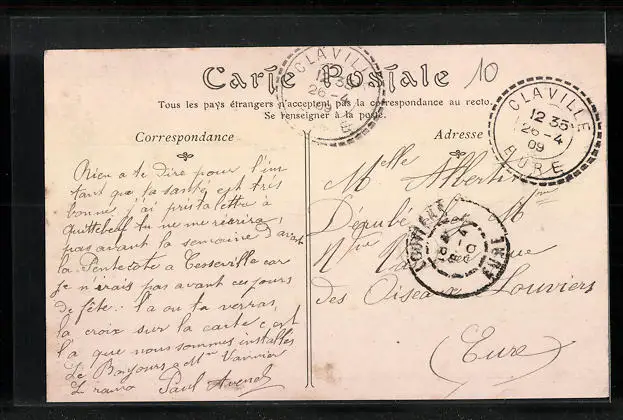 Carte Postale
10
Tous les pays étrangers n'acceptent pas la correspondance au recto.
Se renseigner à la poste.
Correspondance
Adresse
Rien a te dire pour l'ins
tant que ta santé est très
bonne, j'ai pris ta lettre à
Quittebeuf tu ne me
pas avant la semaine d'avant
la Pentecote a Tesseville car
je n'irais pas avant ces jours
de fête. la ou tu verras
la croix sur la carte c'est
la que nous sommes installés
Le Bonjours a Mr Vannier
Paul Avenel
Melle Albertine
Mme
des Oiseaux Louviers
(Eure)
CLAVILLE
12 35
26-4
09
EURE
CLAVILLE
12 35
26-4
09
E
LOUVIERS
EURE